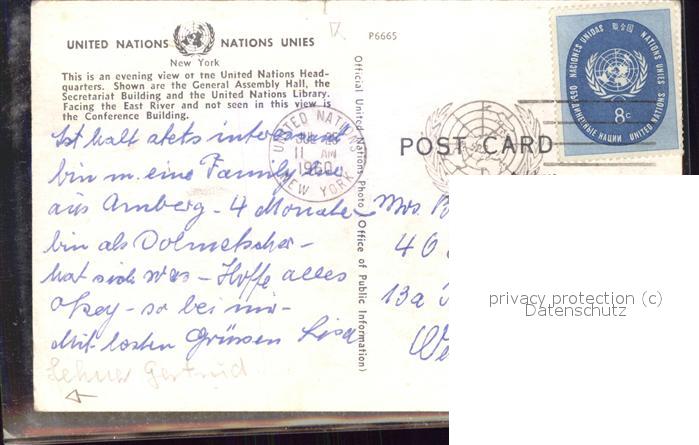 UNITED NATIONS NATIONS UNIES
New York
This is an evening view or tne United Nations Head-
quarters. Shown are the General Assembly Hall, the
Secretariat Building and the United Nations Library.
Facing the East River and not seen in this view is
the Conference Building.
P6665
Official United Nations Photo (Office of Public Information)
UNITED NATIONS
11 AM
1960
NEW YORK
POST CARD
NACIONES UNIDAS
NATIONS UNIES
UNITED NATIONS
ОБЪЕДИНЕННЫЕ НАЦИИ
8c
Ist halt stets interessant
bin m. eine Family
aus Amberg - 4 Monate
bin als Dolmetscher -
hat sich was - Hoffe alles
okey - so bei mir -
Mit besten Grüssen Lisa
Lehner Gertrud
Mrs. B
40
13a
We
privacy protection (c)
Datenschutz